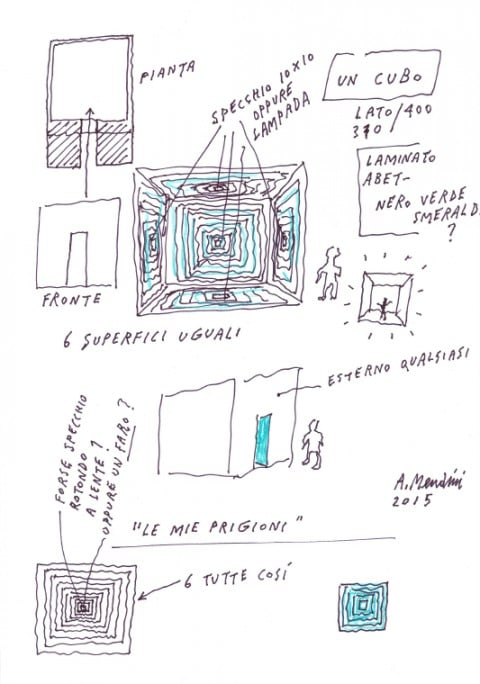 PIANTA
SPECCHIO 10X10
OPPURE
LAMPADA
UN CUBO
LATO/400
370/
LAMINATO
ABET-
NERO VERDE
SMERALD.
?
FRONTE
6 SUPERFICI UGUALI
ESTERNO QUALSIASI
FORSE SPECCHIO
ROTONDO
A LENTE?
OPPURE UN FARO?
A. Mendini
2015
"LE MIE PRIGIONI"
6 TUTTE COSÍ